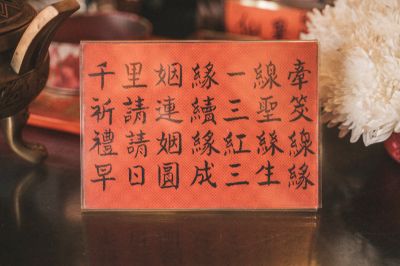 千里姻緣一線牽
祈請連續三聖筊
禮請姻緣紅絲線
早日圓成三生緣